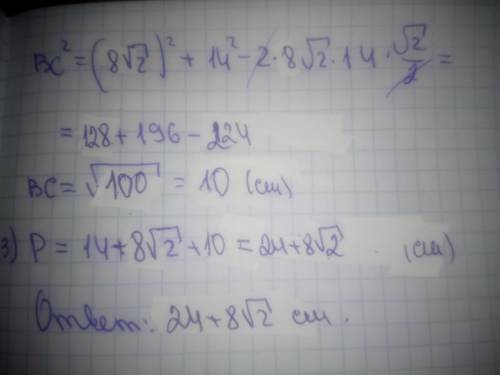 BC² = (8√2)² + 14² - 2 · 8√2 · 14 · √2/2 =
= 128 + 196 - 224
BC = √100 = 10 (см)
3) P = 14 + 8√2 + 10 = 24 + 8√2 (см)
Ответ: 24 + 8√2 см.